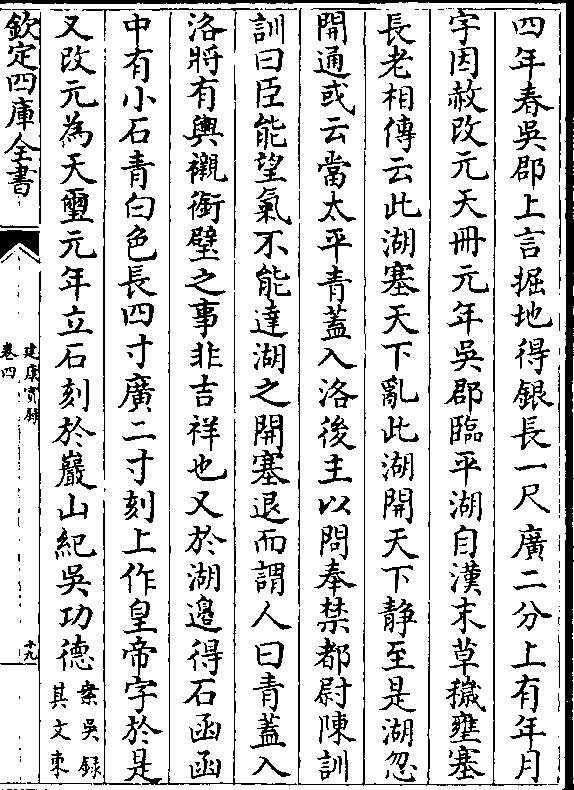 四年春吳郡上言掘地得銀長一尺廣二分上有年月
字因赦改元天冊元年吳郡臨平湖自漢末草穢壅塞
長老相傳云此湖塞天下亂此湖開天下靜至是湖忽
開通或云當太平青蓋入洛後主以問奉禁都尉陳訓
訓曰臣能望氣不能達湖之開塞退而謂人曰青蓋入
洛將有輿櫬銜璧之事非吉祥也又於湖邉得石函函
中有小石青白色長四寸廣二寸刻上作皇帝字於是
又改元為天璽元年立石刻於巖山紀吳功德案吳録
其文東
欽定四庫全書
建康實録
卷四
十九